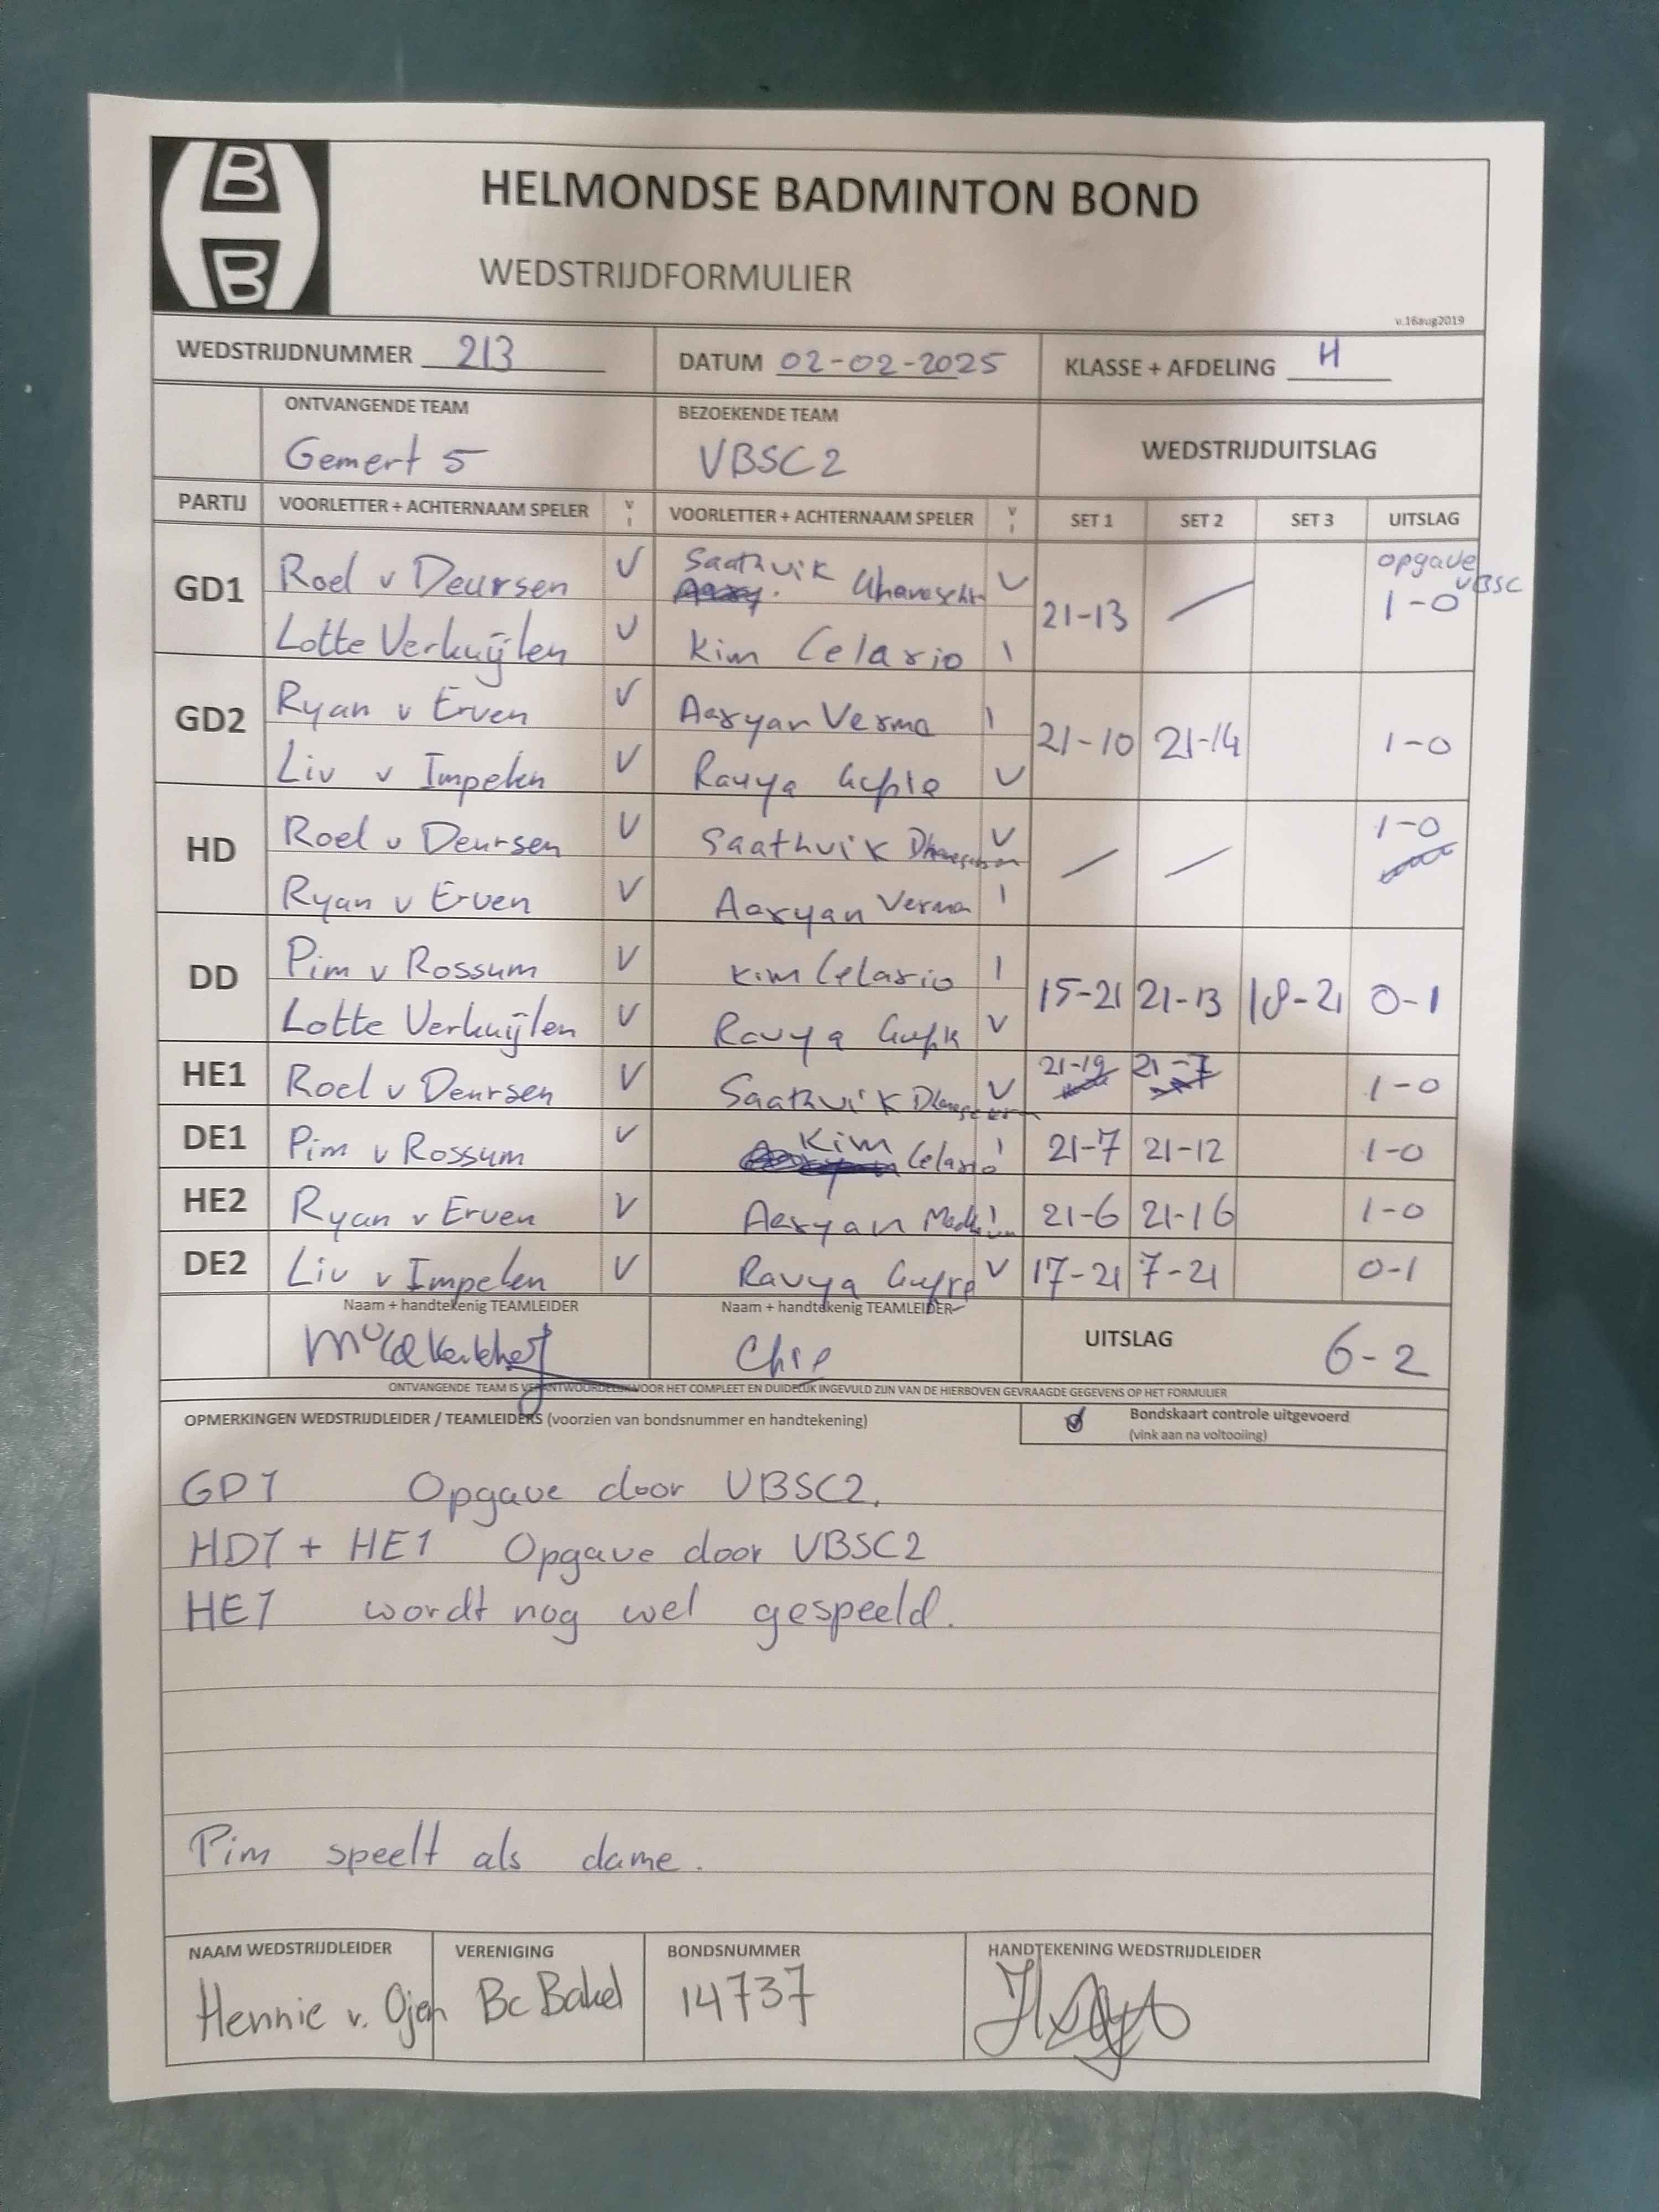 B
B
HELMONDSE BADMINTON BOND
WEDSTRIJDFORMULIER
v.16aug2019
WEDSTRIJDNUMMER 213 DATUM 02-02-2025 KLASSE + AFDELING H
ONTVANGENDE TEAM BEZOEKENDE TEAM
Gemert 5 VBSC2 WEDSTRIJDUITSLAG
PARTIJ VOORLETTER + ACHTERNAAM SPELER V I VOORLETTER + ACHTERNAAM SPELER V I SET 1 SET 2 SET 3 UITSLAG
GD1 Roel v Deursen V Saathvik V 21-13 / opgave VBSC 1-0
Lotte Verkuijlen V Kim Celario I
GD2 Ryan v Erven V Aaryan Verma I 21-10 21-14 1-0
Liv v Impelen V Ravya V
HD Roel v Deursen V Saathvik V / / 1-0
Ryan v Erven V Aaryan Verma I
DD Pim v Rossum V Kim Celario I 15-21 21-13 18-21 0-1
Lotte Verkuijlen V Ravya V
HE1 Roel v Deursen V Saathvik V 21-19 21-7 1-0
DE1 Pim v Rossum V Kim Celario I 21-7 21-12 1-0
HE2 Ryan v Erven V Aaryan I 21-6 21-16 1-0
DE2 Liv v Impelen V Ravya V 17-21 7-21 0-1
Naam + handtekenig TEAMLEIDER Naam + handtekenig TEAMLEIDER
UITSLAG 6-2
ONTVANGENDE TEAM IS VERANTWOORDELIJK VOOR HET COMPLEET EN DUIDELIJK INGEVULD ZIJN VAN DE HIERBOVEN GEVRAAGDE GEGEVENS OP HET FORMULIER
OPMERKINGEN WEDSTRIJDLEIDER / TEAMLEIDERS (voorzien van bondsnummer en handtekening) Bondskaart controle uitgevoerd
(vink aan na voltooiing)
GD1 Opgave door VBSC2.
HD1 + HE1 Opgave door VBSC2
HE1 wordt nog wel gespeeld.
Pim speelt als dame.
NAAM WEDSTRIJDLEIDER VERENIGING BONDSNUMMER HANDTEKENING WEDSTRIJDLEIDER
Hennie v. Bc Bakel 14737